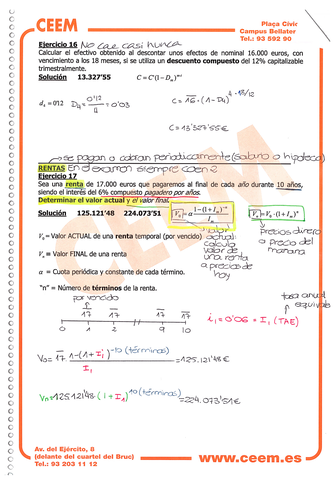 CEEM
Plaça Cívic
Campus Bellater
Tel.: 93 592 90
Ejercicio 16 No cae casi nunca
Calcular el efectivo obtenido al descontar unos efectos de nominal 16.000 euros, con
vencimiento a los 18 meses, si se utiliza un descuento compuesto del 12% capitalizable
trimestralmente.
Solución 13.327'55 C = C'(1-Dₙ)
d₄ = 0'12 D₄ = 0'12/4 = 0'03 C = 16·(1-D₄)^4·18/12
C = 13'327'55€
→ se pagan o cobran periódicamente (salario o hipoteca)
RENTAS En el examen siempre caen 2
Ejercicio 17
Sea una renta de 17.000 euros que pagaremos al final de cada año durante 10 años,
siendo el interés del 6% compuesto pagadero por años.
Determinar el valor actual y el valor final.
Solución 125.121'48 224.073'51 V₀ = α 1-(1+Iₘ)⁻ⁿ/Iₘ Vₙ = V₀·(1+Iₘ)ⁿ
V₀ = Valor ACTUAL de una renta temporal (por vencido) actual:
calcula
valor de
una renta
a precios de
hoy
precios
a precio del
mañana
Vₙ = Valor FINAL de una renta
α = Cuota periódica y constante de cada término.
"n" = Número de términos de la renta.
por vencido
17 17 17 17
0 1 2 9 10
tasa anual
equival
i₁ = 0'06 = I₁ (TAE)
V₀ = 17·1-(1+I₁)⁻¹⁰ (términos)/I₁ = 125.121'48€
Vₙ = 125.121'48 (1+I₁)¹⁰ (términos) = 224.073'51€
Av. del Ejército, 8
(delante del cuartel del Bruc)
Tel.: 93 203 11 12
www.ceem.es